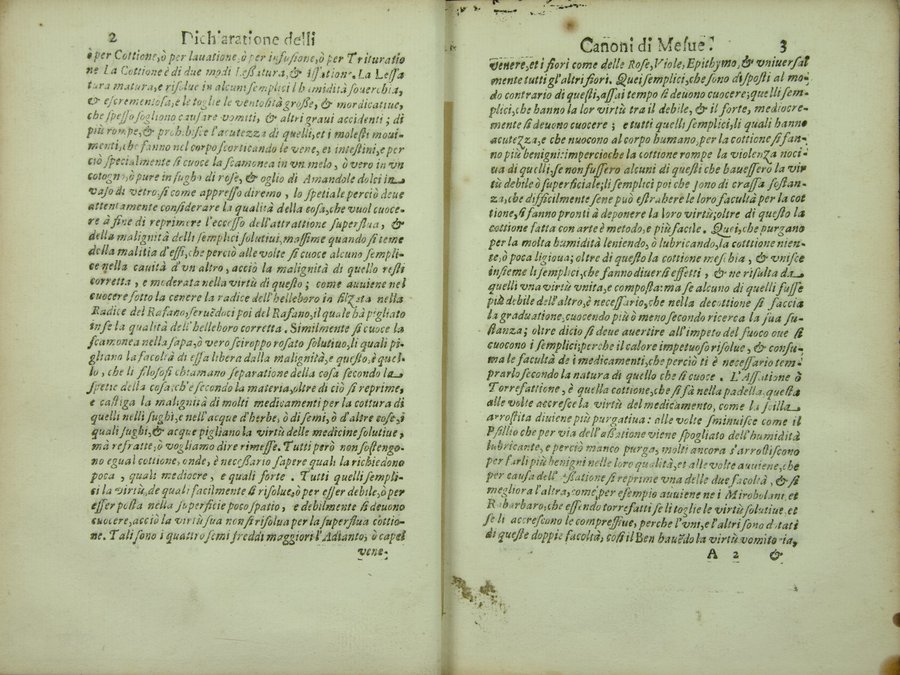 2 Dichiaratione delli
ò per Cottione, ò per lauatione, ò per infusione, ò per Trituratio
ne La Cottione è di due modi Lessatura, & assation. La Lessa
tura matura, e risolue in alcuni semplici l'humidità souerchia,
& escrementosa, e le toglie le ventosità große, & mordicatiue,
che spesso sogliono causare vomiti, & altri graui accidenti; di
più rompe, & prohibisce l'acutezza di quelli, et i molesti moui-
menti, che fanno nel corpo scorticando le vene, et intestini, e per
ciò specialmente si cuoce la scamonea in vn melo, ò vero in vn
cotogno, ò pure in sugho di rose, & oglio di Amandole dolci in
vaso di vetro, si come appresso diremo, lo spetiale perciò deue
attentamente considerare la qualità della cosa, che vuol cuoce-
re à fine di reprimere l'eccesso dell'attrattione superflua, &
della malignità delli semplici solutiui, massime quando si teme
della malitia d'essi, che perciò alle volte si cuoce alcuno sempli-
ce nella cauità d'vn altro, acciò la malignità di quello resti
corretta, e moderata nella virtù di questo; come auuiene nel
cuocere sotto la cenere la radice dell'helleboro in filzata nella
Radice del Rafano, seruēdoci poi del Rafano, il quale hà pigliato
in se la qualità dell'helleboro corretta. Similmente si cuoce la
scamonea nella sapa, ò vero sciroppo rosato solutiuo, li quali pi-
gliano la facoltà di essa libera dalla malignità, e questo, è quel-
lo, che li filosofi chiamano separatione della cosa secondo la
spetie della cosa; ch'è secondo la materia, oltre di ciò si reprime,
e castiga la malignità di molti medicamenti per la cottura di
quelli nelli sughi, e nell'acque d'herbe, ò di semi, ò d'altre cose, i
quali sughi, & acque pigliano la virtù delle medicine solutiue,
mà refratte, ò vogliamo dire rimesse. Tutti però non sostengo-
no egual cottione, onde, è neceßario sapere quali la richiedono
poca, quali mediocre, e quali forte. Tutti quelli sempli-
ci la virtù, de quali facilmente si risolue, ò per esser debile, ò per
esser posta nella superficie poco spatio, e debilmente si deuono
cuocere, acciò la virtù sua non si risolua per la superflua cottio-
ne. Tali sono i quattro semi freddi maggiori l'Adianto, ò capel
vene-
Canoni di Mesue. 3
venere, et i fiori come delle Rose, Viole, Epithymo, & vniuersal
mente tutti gl'altri fiori. Quei semplici, che sono disposti al mo-
do contrario di questi, assai tempo si deuono cuocere; quelli sem-
plici, che hanno la lor virtù tra il debile, & il forte, mediocre-
mente si deuono cuocere; e tutti quelli semplici, li quali hanno
acutezza, e che nuocono al corpo humano, per la cottione si fan-
no più benigni: impercioche la cottione rompe la violenza noci-
ua di quelli, se non fussero alcuni di questi che hauessero la vir
tù debile ò superficiale; li semplici poi che sono di crassa sostan-
za, che difficilmente sene può estrahere le loro facultà per la cot
tione, si fanno pronti à deponere la loro virtù; oltre di questo la
cottione fatta con arte è metodo, e più facile. Quei, che purgano
per la molta humidità leniendo, ò lubricando, la cottione nien-
te, ò poca li gioua; oltre di questo la cottione meschia, & vnisce
insieme li semplici, che fanno diuersi effetti, & ne risulta da
quelli vna virtù vnita, e composta: ma se alcuno di quelli fusse
più debile dell'altro, è necessario, che nella decottione si faccia
la graduatione, cuocendo più ò meno secondo ricerca la sua su-
stanza; oltre di ciò si deue auertire all'impeto del fuoco oue si
cuocono i semplici; perche il calore impetuoso risolue, & consu-
ma le facultà de i medicamenti, che perciò ti è necessario tem-
prarlo secondo la natura di quello che si cuoce. L'Assatione ò
Torrefattione, è quella cottione, che si fà nella padella, questa
alle volte accresce la virtù del medicamento, come la scilla
arrostita diuiene più purgatiua: alle volte sminuisce come il
Psillio che per via dell'aßatione viene spogliato dell'humidità
lubricante, e perciò manco purga, molti ancora s'arrostiscono
per farli più benigni nelle loro qualità, et alle volte auuiene, che
per causa dell'assatione si reprime vna delle due facoltà, & si
megliora l'altra, come per esempio auuiene nei Mirobolani, et
Rabarbaro, che essendo torrefatti se li toglie le virtù solutiue, et
se li accrescono le compressiue, perche l'vni, e l'altri sono dotati
di queste doppie facoltà, così il Ben hauēdo la virtù vomitoria,
A 2 &